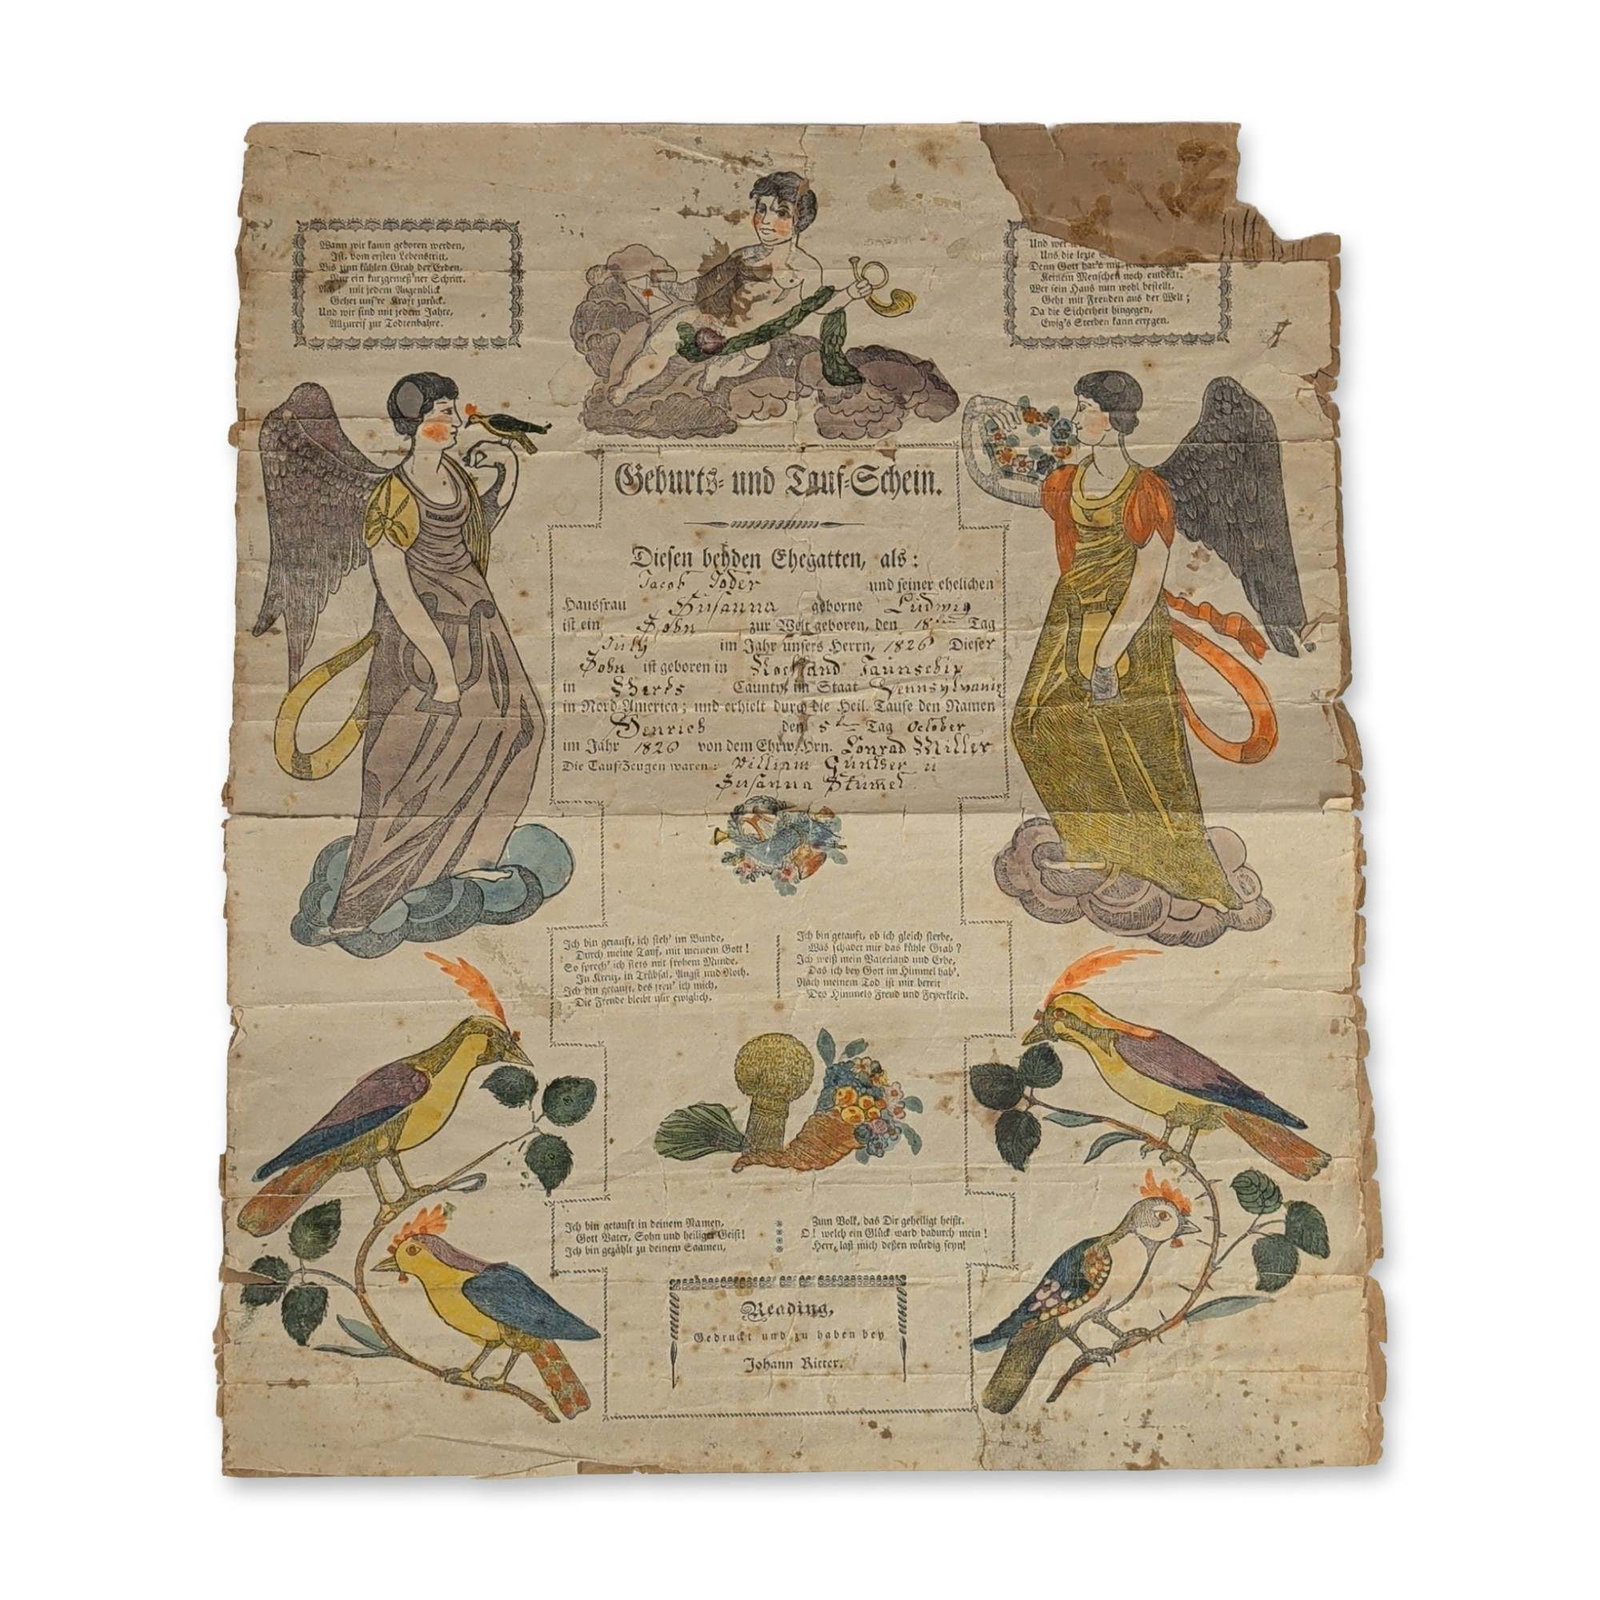 Wann wir kaum geboren werden,
Ist vom ersten Lebenstritt,
Bis zum kühlen Grab der Erden,
Nur ein kurzgemeß'ner Schritt.
Ach! mit jedem Augenblick
Gehet uns're Kraft zurück,
Und wir sind mit jedem Jahre,
Allzureif zur Todtenbahre.
Und wer
Uns die letze
Denn Gott hat's mit
Keinem Menschen noch entdeckt.
Wer sein Haus nun wohl bestellt,
Geht mit Freuden aus der Welt;
Da die Sicherheit hingegen,
Ewig's Sterben kann erregen.
Geburts- und Tauf-Schein.
Diesen beyden Ehegatten, als:
Jacob Joder und seiner ehelichen
Hausfrau Susanna geborne Ludwig
ist ein Sohn zur Welt geboren, den 18ten Tag
July im Jahr unsers Herrn, 1826 Dieser
Sohn ist geboren in Rockland Taunschip
in Berks Caunty im Staat Pennsylvania
in Nord America; und erhielt durch die Heil. Taufe den Namen
Henrich den 5ten Tag October
im Jahr 1826 von dem Ehrw. Hrn. Conrad Miller
Die Tauf-Zeugen waren: William Günther u
Susanna
Ich bin getauft, ich steh' im Bunde,
Durch meine Tauf, mit meinem Gott!
So sprech' ich stets mit frohem Munde,
In Kreuz, in Trübsal, Angst und Noth.
Ich bin getauft, des freu' ich mich,
Die Freude bleibt mir ewiglich.
Ich bin getauft, ob ich gleich sterbe,
Was schadet mir das kühle Grab?
Ich weiß mein Vaterland und Erbe,
Das ich bey Gott im Himmel hab'.
Nach meinem Tod ist mir bereit
Des Himmels Freud und Feyerkleid.
Ich bin getauft in deinem Namen,
Gott Vater, Sohn und heiliger Geist!
Ich bin gezählt zu deinem Saamen,
Zum Volk, das Dir geheiligt heißt.
O! welch ein Glück ward dadurch mein!
Herr, laß mich deßen würdig seyn!
Reading,
Gedruckt und zu haben bey
Johann Ritter.